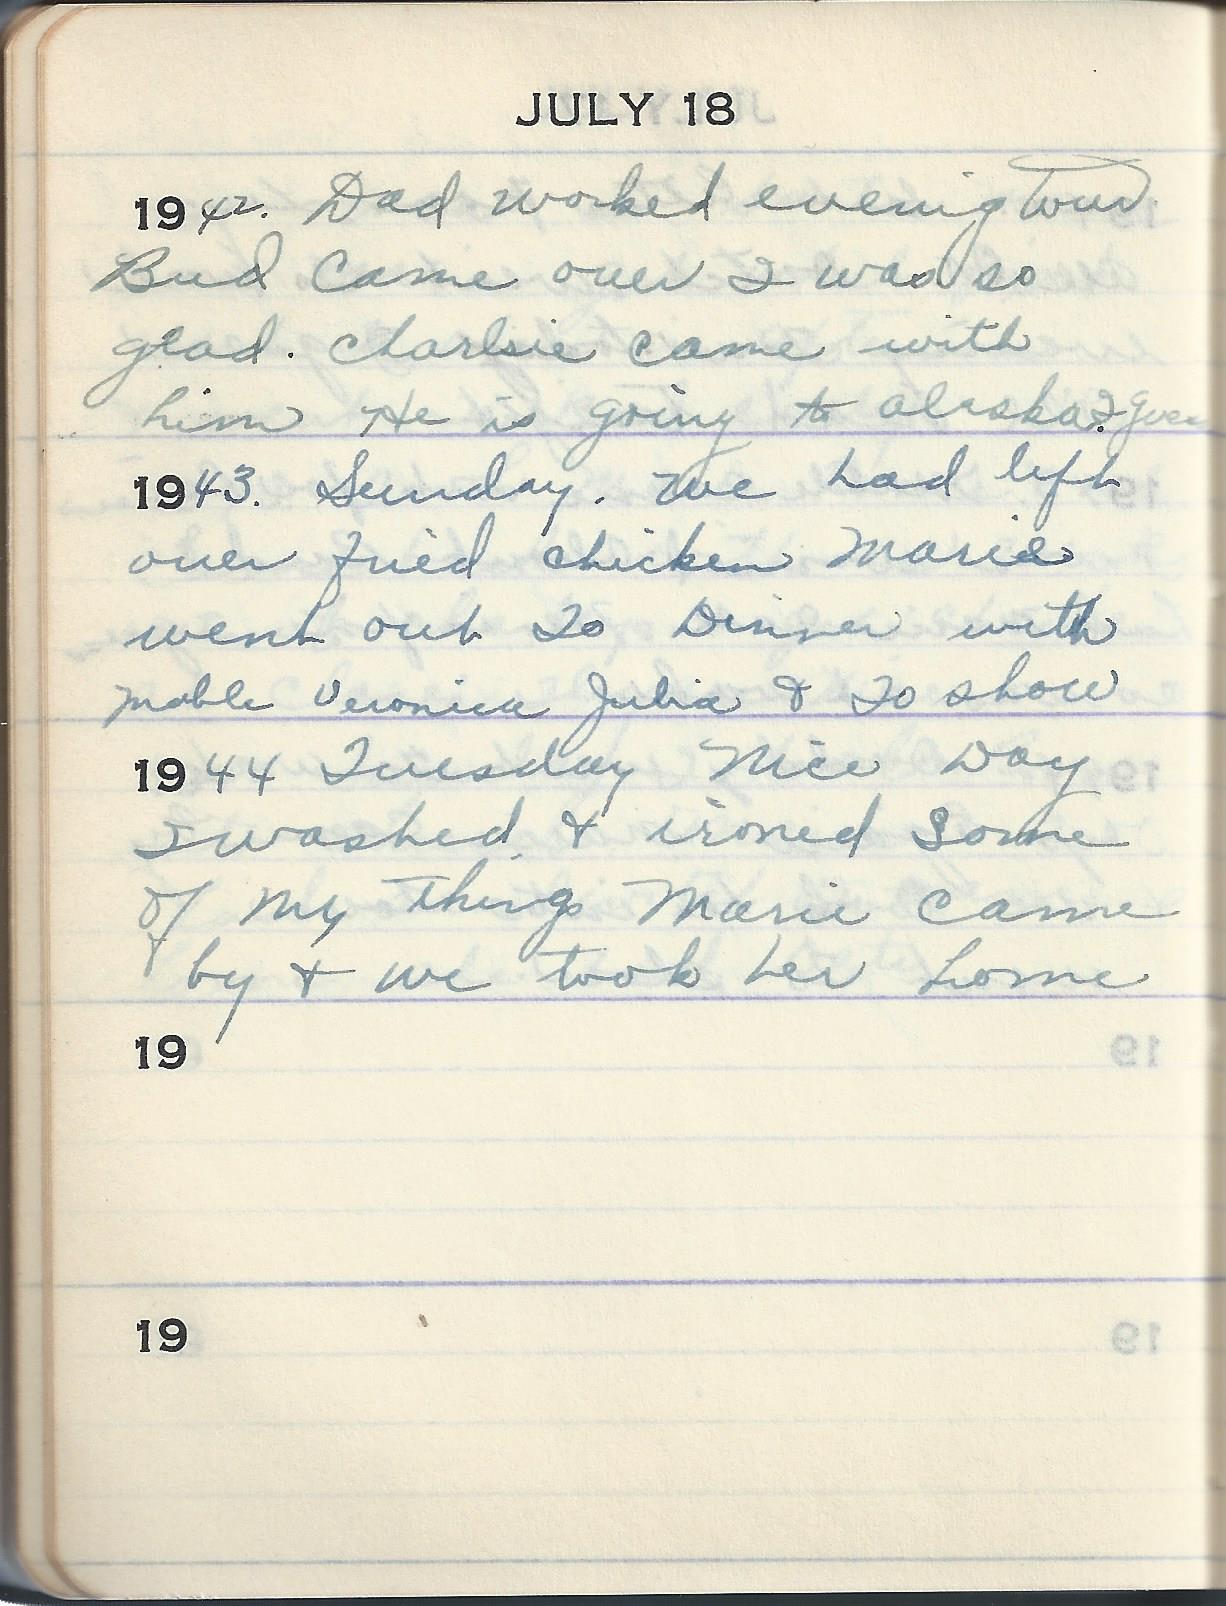 JULY 18
1942. Dad worked evening Tour
Bud Came over I was so
glad. Charlsie came with
him He is going to alaska. I guess
1943. Sunday. We had left
over fried chicken Marie
went out To Dinner with
Mable Veronica Julia & To show
1944 Tuesday Nice Day
I washed & ironed Some
of My Things Marie came
by & we took her home
19
19